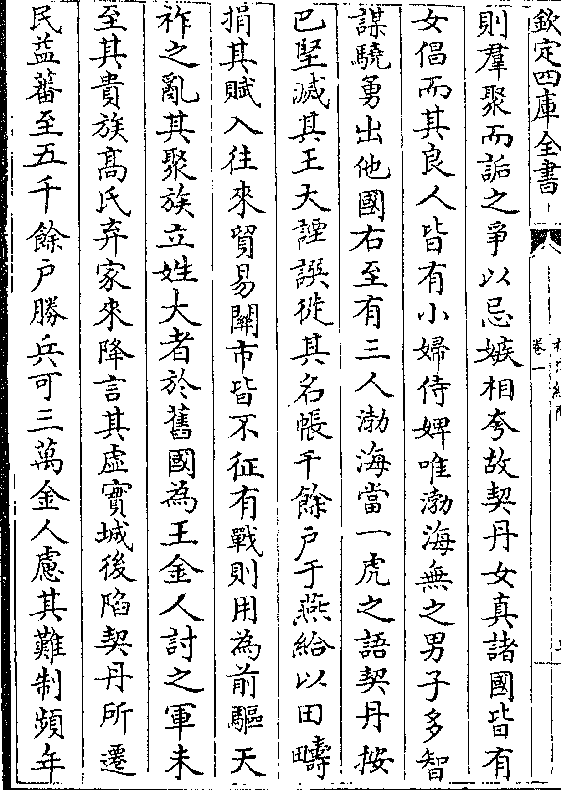 欽定四庫全書
卷一
則羣聚而詬之爭以忌嫉相夸故契丹女真諸國皆有
女倡而其良人皆有小婦侍婢唯渤海無之男子多智
謀驍勇出他國右至有三人渤海當一虎之語契丹按
巴堅滅其王大諲譔徙其名帳千餘戶于燕給以田疇
捐其賦入往來貿易關市皆不征有戰則用為前驅天
祚之亂其聚族立姓大者於舊國為王金人討之軍未
至其貴族髙氏弃家來降言其虛實城後陷契丹所遷
民益蕃至五千餘戶勝兵可三萬金人慮其難制頻年